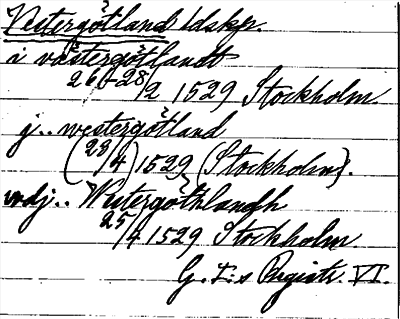 Vestergötland ldskp.
i västergötlandt
26-28/2 1529 Stockholm.
j.. westergötland
(28/4) 1529 (Stockholm).
vdj.. Westergöthlandh
25/4 1529 Stockholm.
G. I:s Registr. VI.